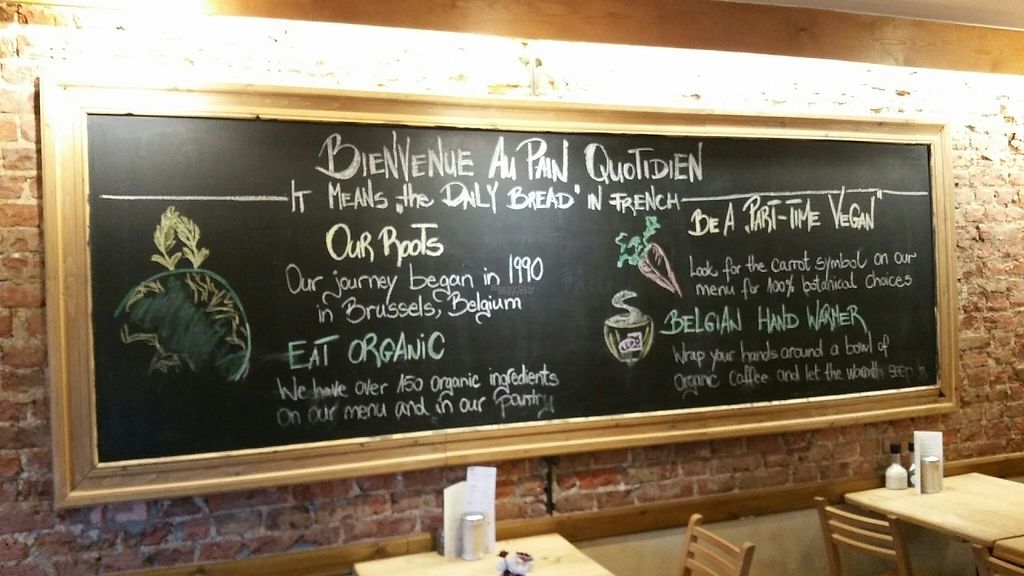 BIENVENUE AU PAIN QUOTIDIEN
IT MEANS "the DAILY BREAD" IN FRENCH
OUR ROOTS
Our journey began in 1990
in Brussels, Belgium
EAT ORGANIC
We have over 150 organic ingredients
on our menu and in our pantry
BE A "PART-TIME VEGAN"
Look for the carrot symbol on our
menu for 100% botanical choices
BELGIAN HAND WARMER
Wrap your hands around a bowl of
organic coffee and let the warmth seep in